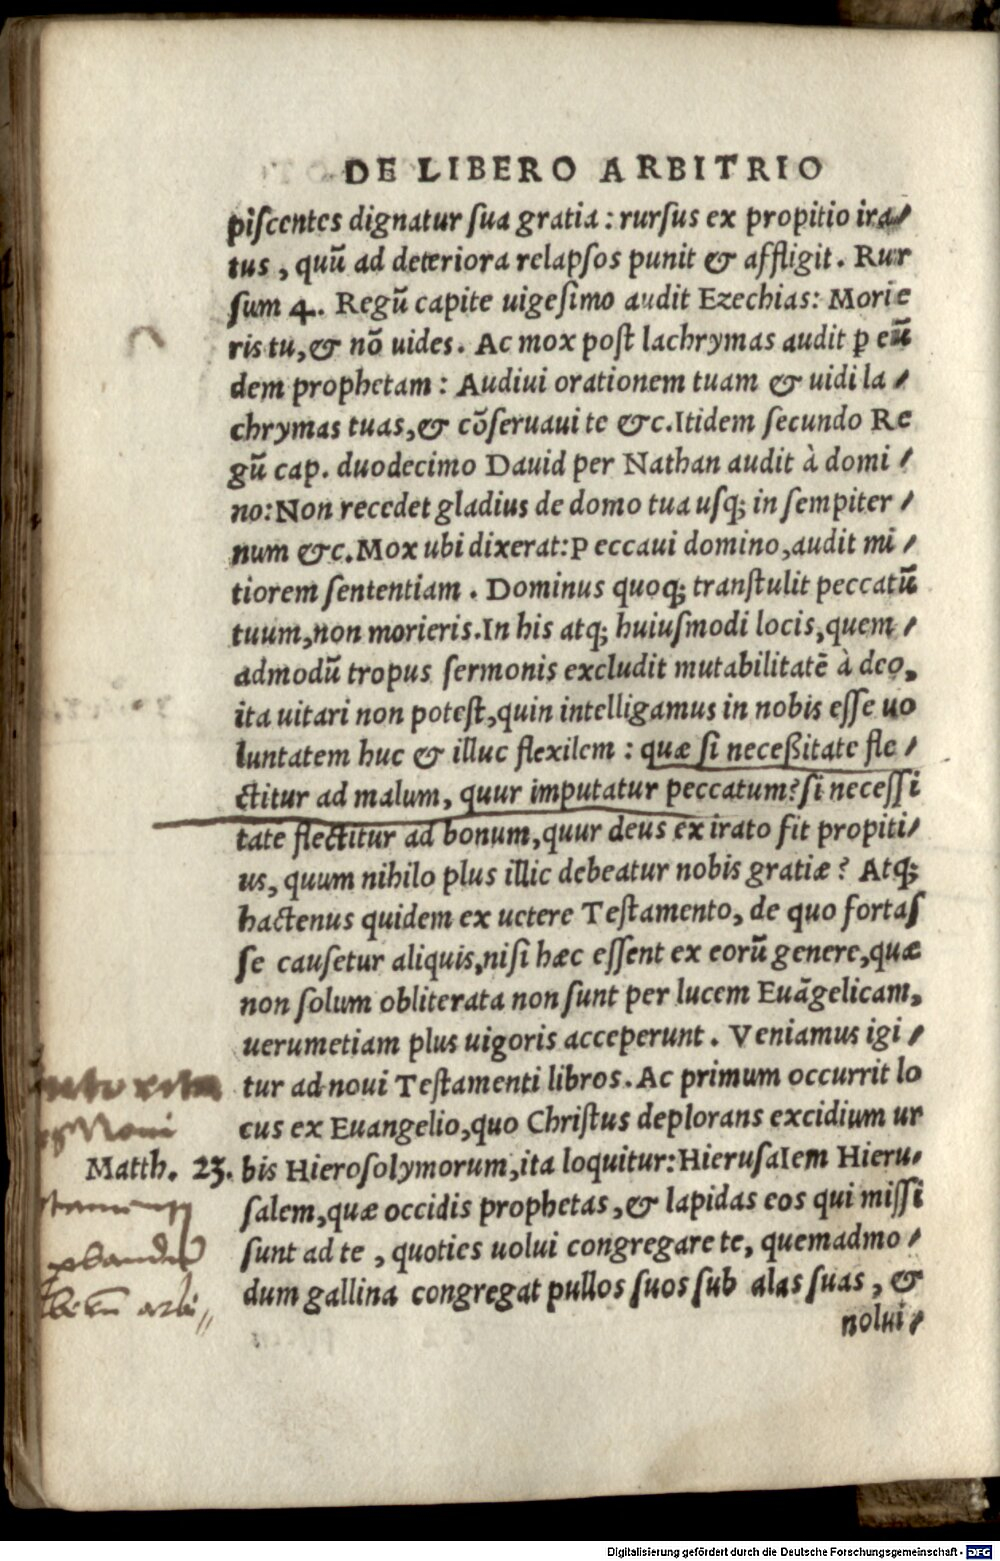 DE LIBERO ARBITRIO
piscentes dignatur sua gratia : rursus ex propitio ira⸗
tus , quū ad deteriora relapsos punit & affligit . Rur
sum 4. Regū capite uigesimo audit Ezechias: Morie
ris tu,& nō uides. Ac mox post lachrymas audit ꝑ eū
dem prophetam : Audiui orationem tuam & uidi la⸗
chrymas tuas,& cōseruaui te &c.Itidem secundo Re
gū cap. duodecimo Dauid per Nathan audit à domi⸗
no:Non recedet gladius de domo tua usq; in sempiter⸗
num &c.Mox ubi dixerat:Peccaui domino,audit mi⸗
tiorem sententiam . Dominus quoq; transtulit peccatū
tuum,non morieris.In his atq; huiusmodi locis,quem⸗
admodū tropus sermonis excludit mutabilitatē à deo,
ita uitari non potest,quin intelligamus in nobis esse uo
luntatem huc & illuc flexilem : quæ si neceßitate fle⸗
ctitur ad malum, quur imputatur peccatum? si necessi
tate flectitur ad bonum,quur deus ex irato fit propiti⸗
us, quum nihilo plus illic debeatur nobis gratiæ? Atq;
hactenus quidem ex uetere Testamento, de quo fortas
se causetur aliquis,nisi hæc essent ex eorū genere,quæ
non solum obliterata non sunt per lucem Euāgelicam,
uerumetiam plus uigoris acceperunt . Veniamus igi⸗
tur ad noui Testamenti libros. Ac primum occurrit lo
cus ex Euangelio,quo Christus deplorans excidium ur
Matth. 23. bis Hierosolymorum,ita loquitur:Hierusalem Hieru⸗
salem,quæ occidis prophetas,& lapidas eos qui missi
sunt ad te , quoties uolui congregare te, quemadmo⸗
dum gallina congregat pullos suos sub alas suas , &
nolui⸗
Noui
arbi
Digitalisierung gefördert durch die Deutsche Forschungsgemeinschaft - DFG